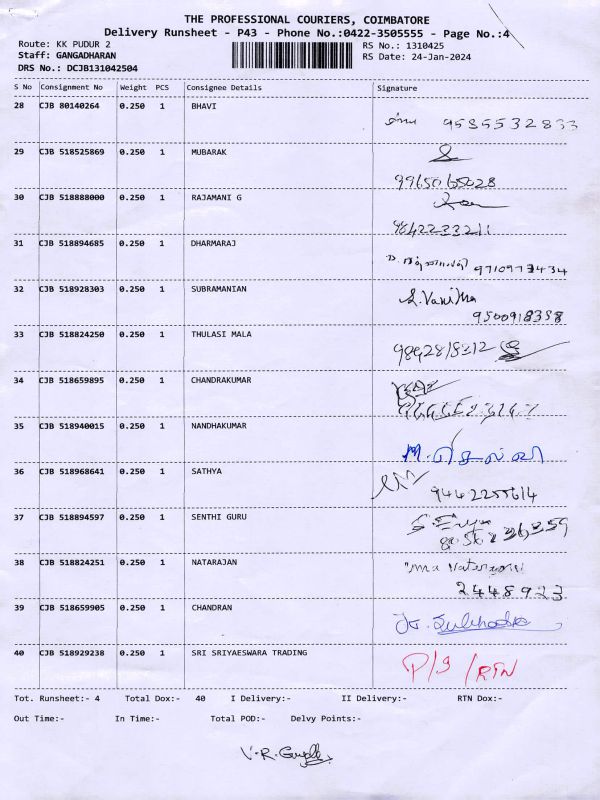 THE PROFESSIONAL COURIERS, COIMBATORE
Delivery Runsheet - P43 - Phone No.:0422-3505555 - Page No.:4
Route: KK PUDUR 2
Staff: GANGADHARAN
DRS No.: DCJB131042504
RS No.: 1310425
RS Date: 24-Jan-2024
S No Consignment No Weight PCS Consignee Details Signature
28 CJB 80140264 0.250 1 BHAVI
9535532833
29 CJB 518525869 0.250 1 MUBARAK
9965065028
30 CJB 518888000 0.250 1 RAJAMANI G
9842233211
31 CJB 518894685 0.250 1 DHARMARAJ
9710973434
32 CJB 518928303 0.250 1 SUBRAMANIAN
S. Vanitha
9500918358
33 CJB 518824250 0.250 1 THULASI MALA
34 CJB 518659895 0.250 1 CHANDRAKUMAR
35 CJB 518940015 0.250 1 NANDHAKUMAR
36 CJB 518968641 0.250 1 SATHYA
9442255614
37 CJB 518894597 0.250 1 SENTHI GURU
38 CJB 518824251 0.250 1 NATARAJAN
2448923
39 CJB 518659905 0.250 1 CHANDRAN
40 CJB 518929238 0.250 1 SRI SRIYAESWARA TRADING
P/S /RTN
Tot. Runsheet:- 4 Total Dox:- 40 I Delivery:- II Delivery:- RTN Dox:-
Out Time:- In Time:- Total POD:- Delvy Points:-